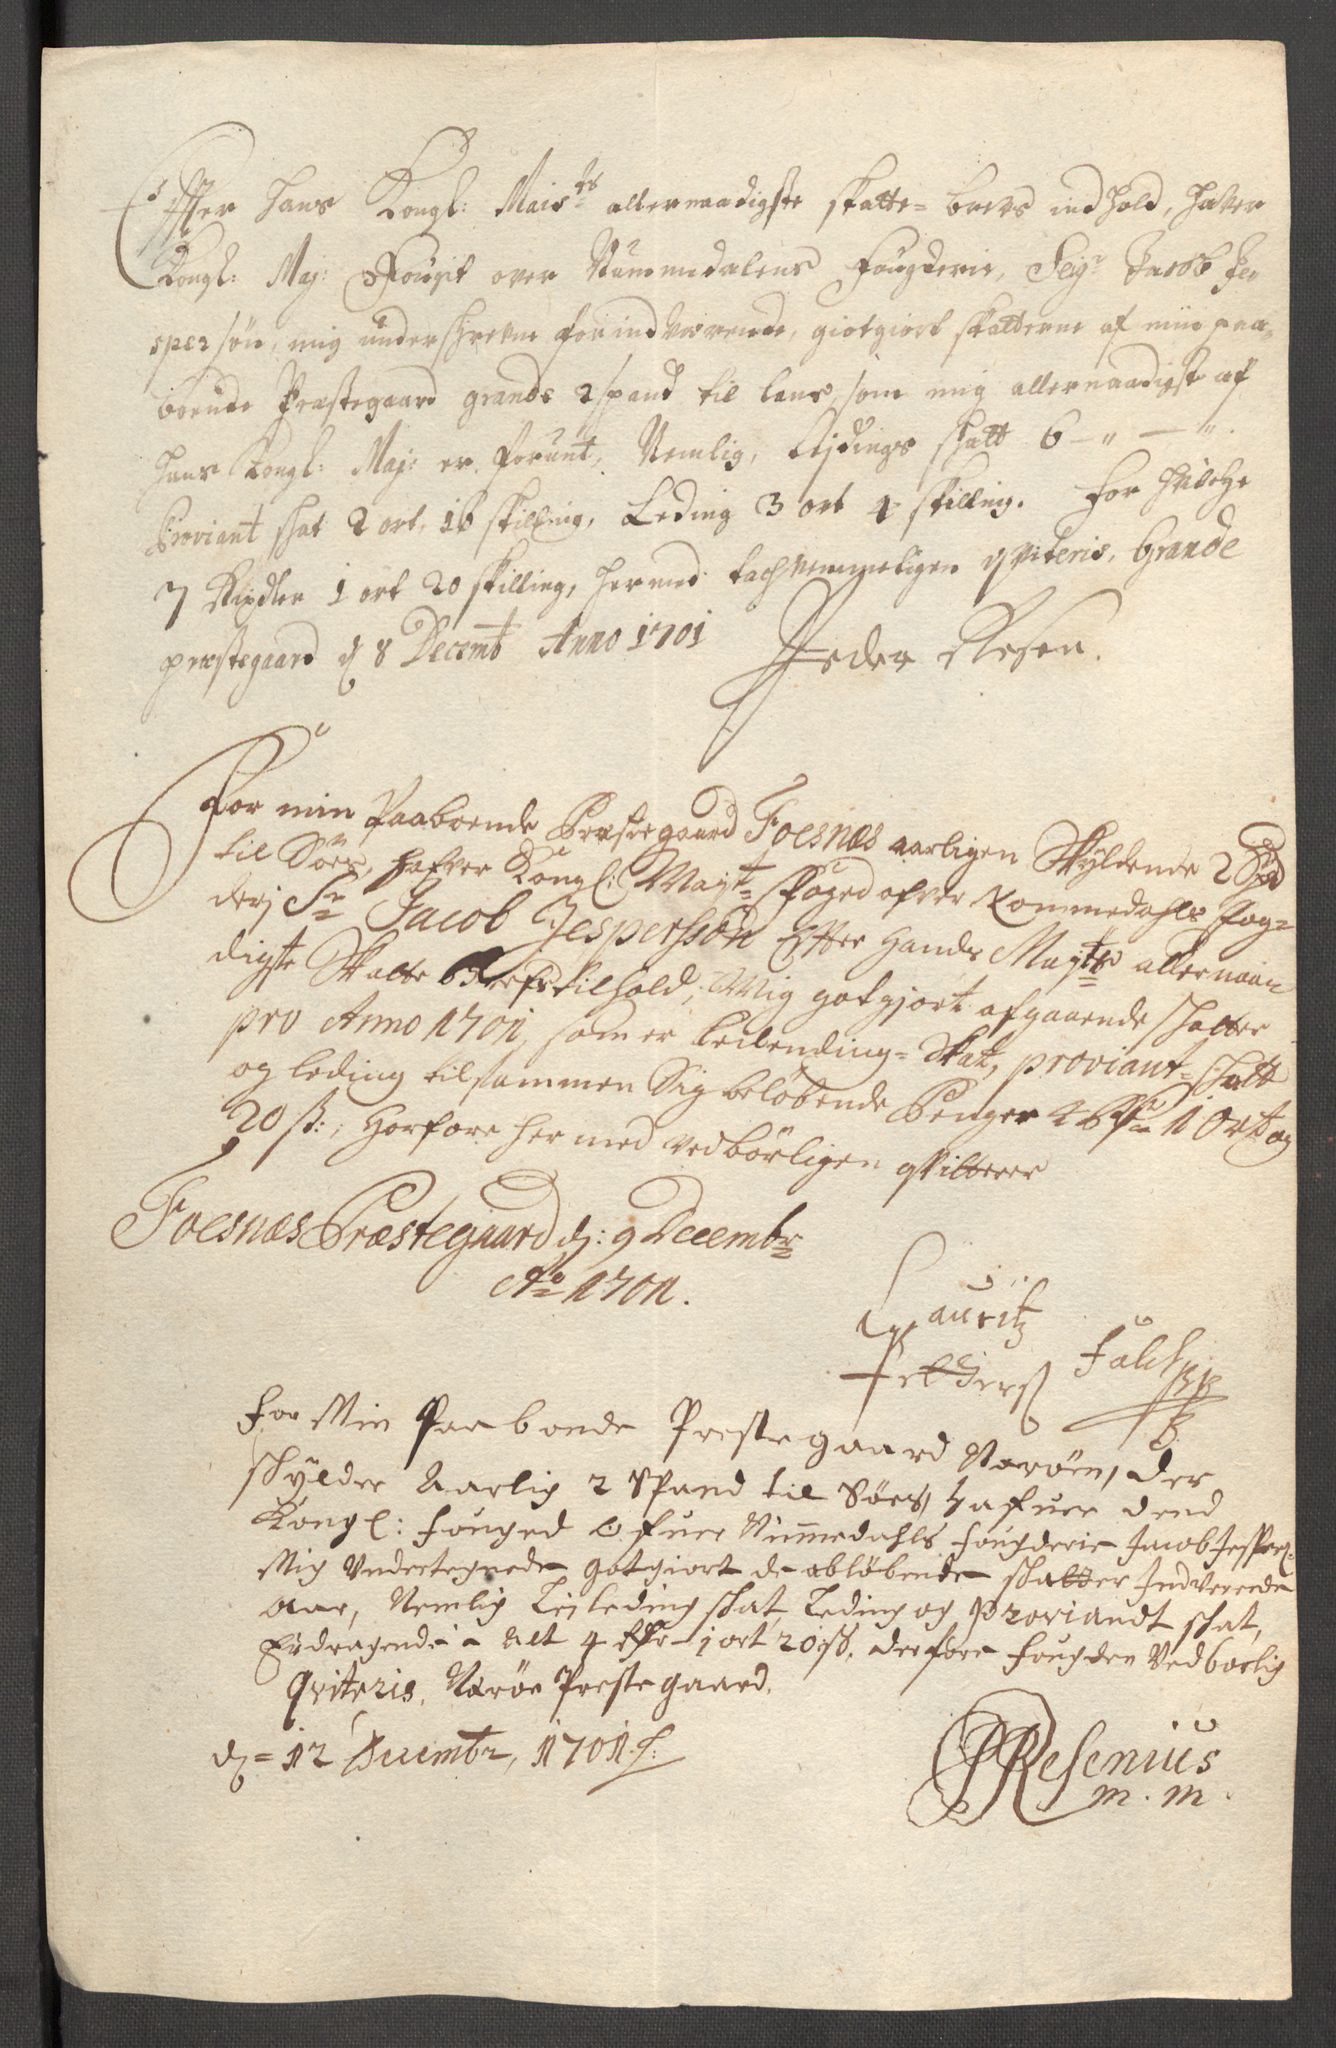 Effter Hans Kongl: Mais:ts allernaadigste skatte= brevs indhold, haver
Kongl: Maj: Fougit over Nummedalens Fougderie, Seigr Jacob Je
spersøn, mig underschrevne forindværende, giotgiort skatterne af min paa=
boende Præstegaard grande 2 spand til lans, som mig allernaadigst af
Hans Kongl: Maj: er forunt, Nemlig, Lejdings skatt 6 – " – ".
Proviant skat 2 ort, 16 skilling, Leding 3 ort 4 skilling. For hvilche
7 Rixdlr 1 ort 20 skilling, hermed tachnemmeligen qviteris, Grande
præstegaard d 8 Decemb Anno 1701
Peder Resen.
For min Paaboende Præstegaard Foesnæs aarligen Skyldende 2 Spd
til Søes, hafver Kongl: Mayt= Foged ofver Nommedahls Fog=
derj Sr Jacob Jesperssøn Effter Hands Mayts allernaa
digste Skatte Brefs tilhold, Mig gotgjort afgaaende skatter
pro Anno 1701, som er Leilending= Skat, proviant= skatt
og leding tilsammen Sig beløbende Penger 4 Rdr 1 Ort og
20 ß:, Horfore her med vedbørligen qvitterer
Foesnæs Præstegaard d: 9 Decembr
Ao 1701.
Lauritz
Pedders Falch
For Min Paaboende Prestegaard Nærøen, der
skylder Aarlig 2 Spand til Søes, hafuer dend
Kongl: fouged Ofuer Nummedahls fougderie Jacob Jespers:
Mig Undertegnede gotgiort de abløbende skatter Indverende
Aar, Nemlig Leilding skat, Leding og Proviandt skat,
Erdragende i alt 4 Rdr 1 ort 20 ß. derfore fougden Vedbørlig
Qviteris, Nærøe Prestegaard.
d= 12 Decembr, 1701
PResenius
m. m.